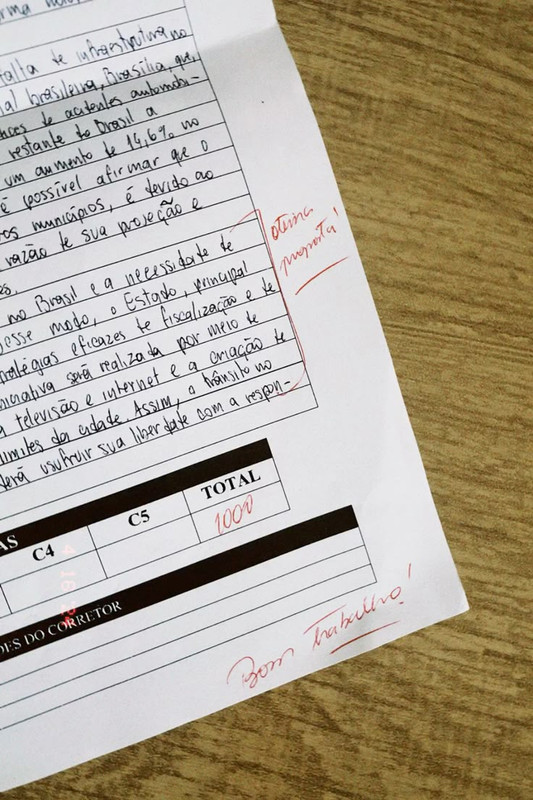 falta de infraestrutura no
brasileira, Brasília, que,
de acidentes automobi-
restante do Brasil a
um aumento de 14,6% no
é possível afirmar que o
municípios, é devido ao
razão de sua projeção e
no Brasil e a necessidade de
modo, o Estado, principal
eficazes de fiscalização e de
será realizada por meio de
televisão e internet e a criação de
limites da cidade. Assim, o trânsito no
usufruir sua liberdade com a respon-
ótima
proposta!
C4
C5
TOTAL
1000
DO CORRETOR
Bom trabalho!